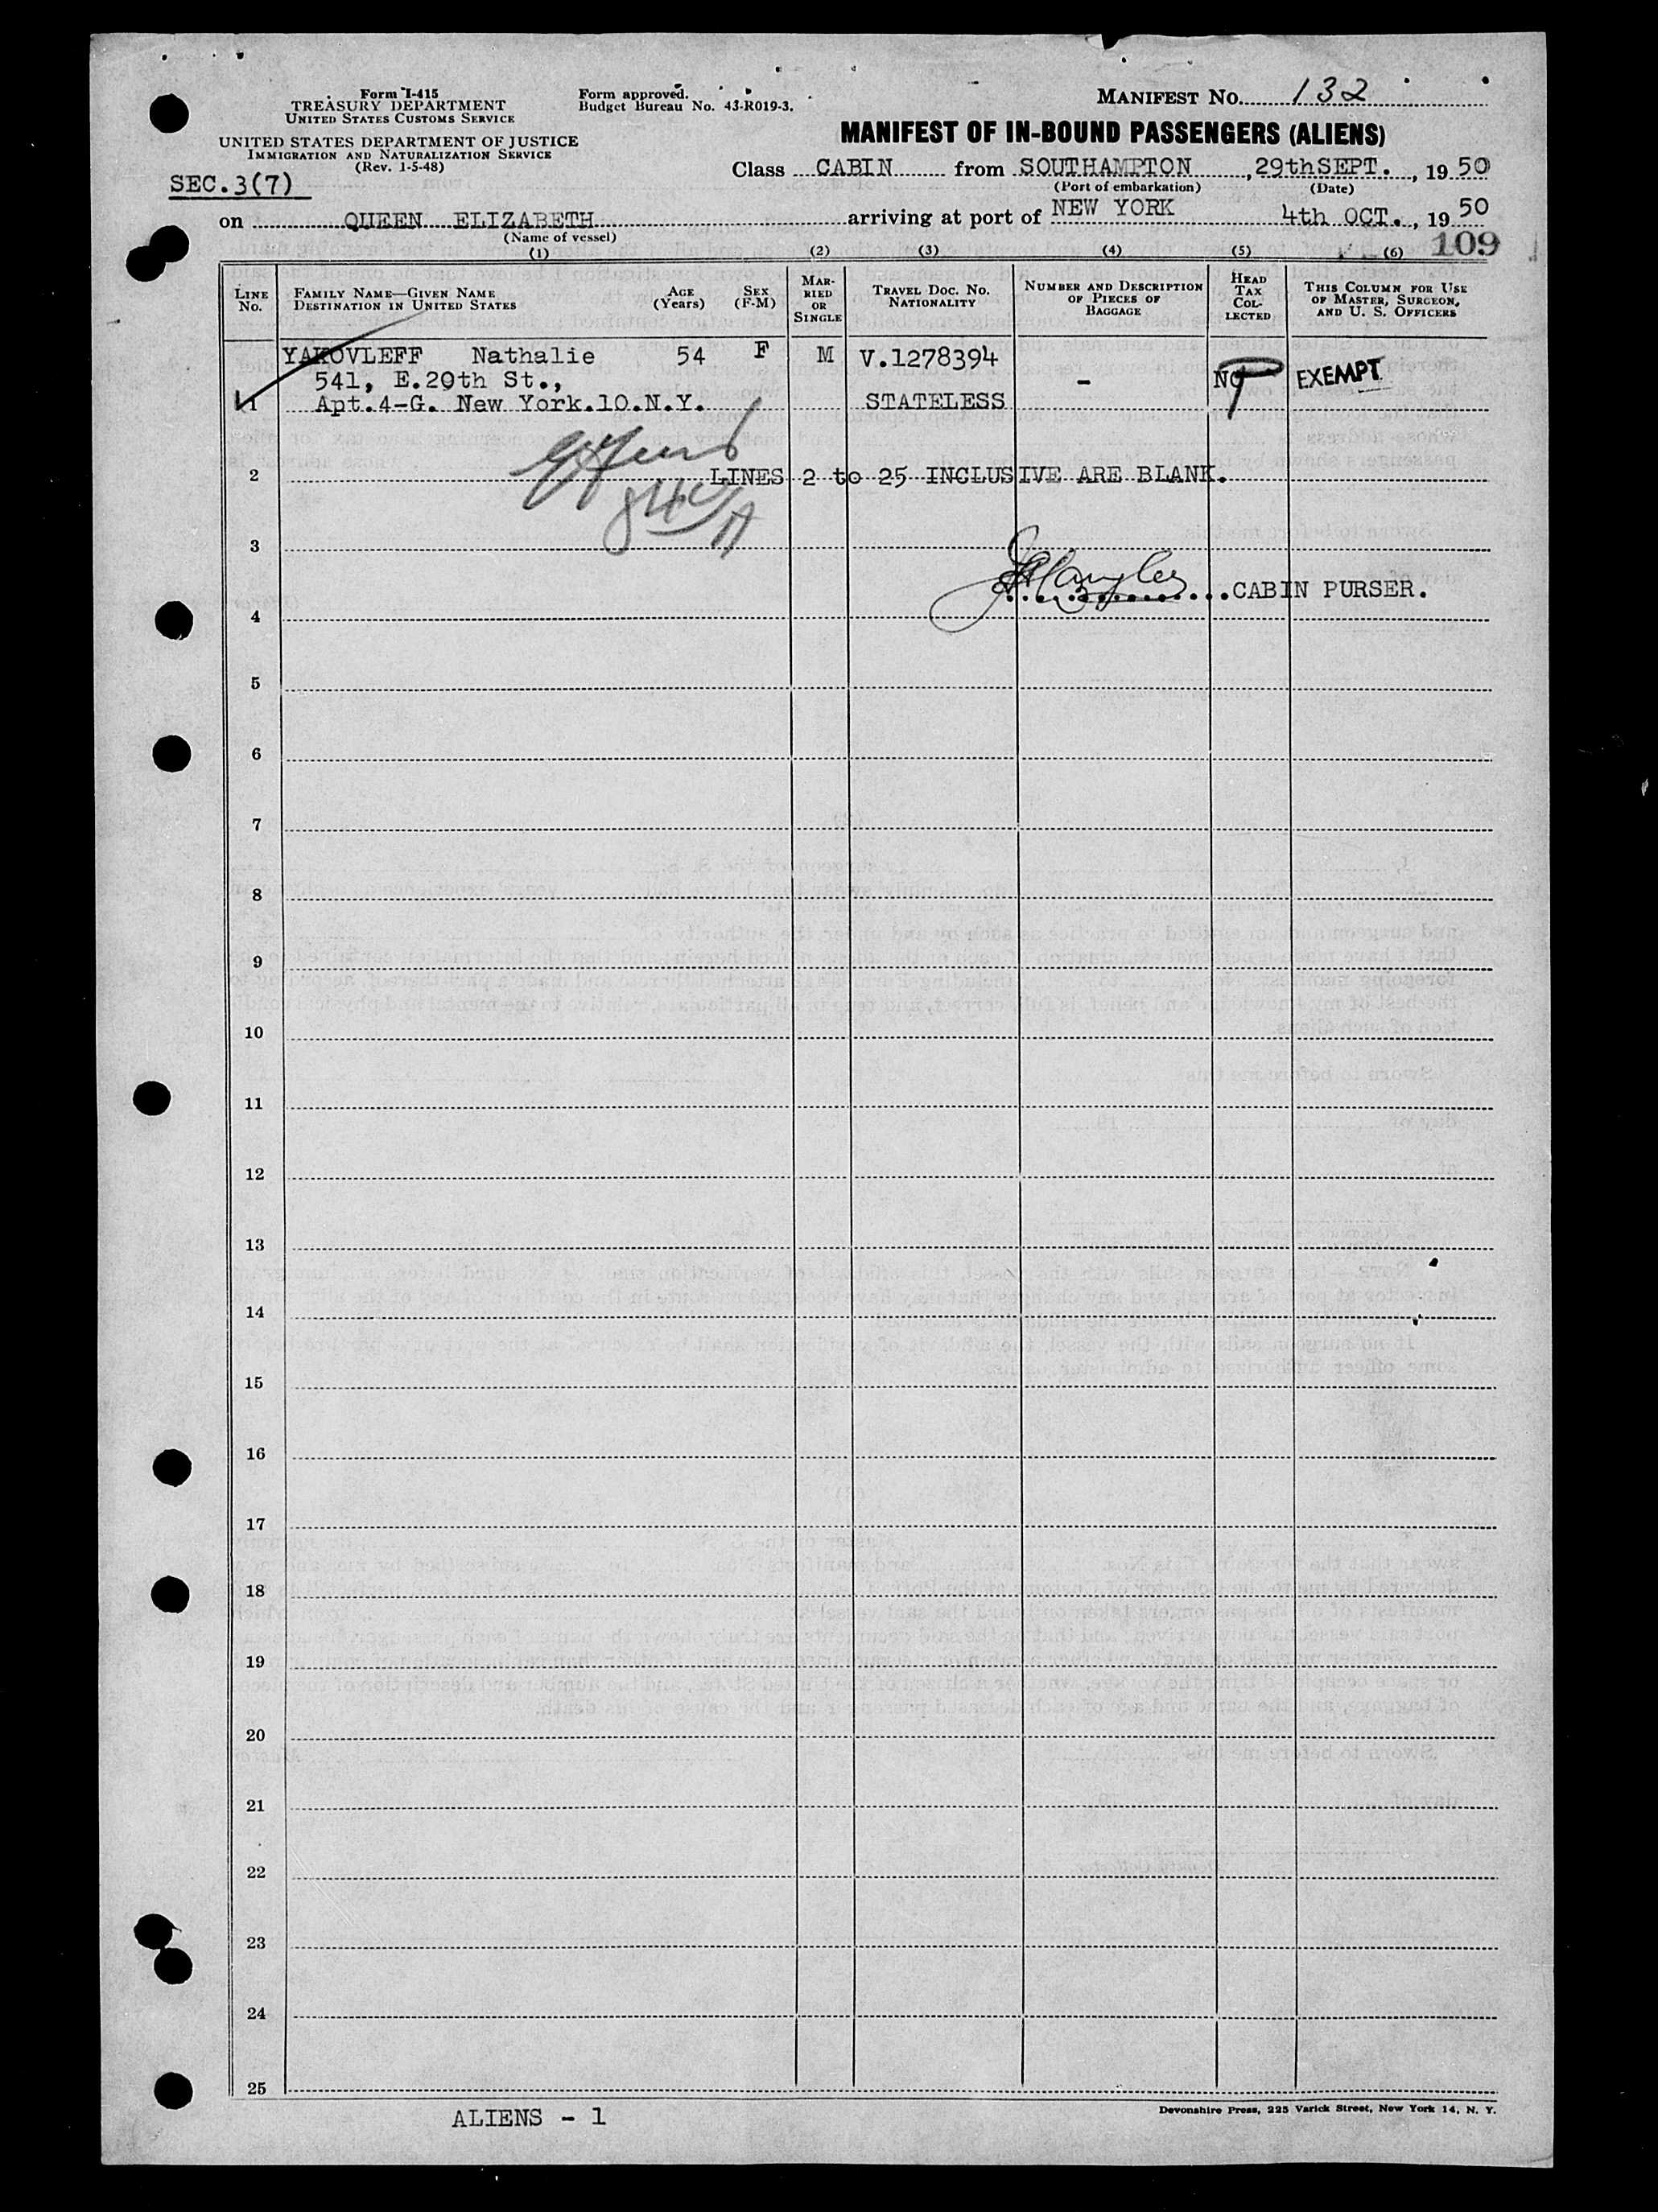 Form I-415
TREASURY DEPARTMENT
UNITED STATES CUSTOMS SERVICE
UNITED STATES DEPARTMENT OF JUSTICE
IMMIGRATION AND NATURALIZATION SERVICE
(Rev. 1-5-48)
Form approved.
Budget Bureau No. 43-R019-3.
MANIFEST NO. 132
MANIFEST OF IN-BOUND PASSENGERS (ALIENS)
SEC.3(7)
Class CABIN from SOUTHAMPTON, 29thSEPT., 1950
(Port of embarkation) (Date)
on QUEEN ELIZABETH arriving at port of NEW YORK 4th OCT., 1950
(Name of vessel)
109
(1) (2) (3) (4) (5) (6)
LINE NO.
FAMILY NAME—GIVEN NAME
DESTINATION IN UNITED STATES
AGE (Years)
SEX (F-M)
MARRIED OR SINGLE
TRAVEL DOC. NO.
NATIONALITY
NUMBER AND DESCRIPTION OF PIECES OF BAGGAGE
HEAD TAX COLLECTED
THIS COLUMN FOR USE OF MASTER, SURGEON, AND U. S. OFFICERS
YAKOVLEFF Nathalie 54 F M V.1278394
541, E.20th St., - NO EXEMPT
1 Apt.4-G. New York.10.N.Y. STATELESS
2 LINES 2 to 25 INCLUSIVE ARE BLANK.
3
CABIN PURSER.
4
5
6
7
8
9
10
11
12
13
14
15
16
17
18
19
20
21
22
23
24
25
ALIENS - 1
Devonshire Press, 225 Varick Street, New York 14, N. Y.